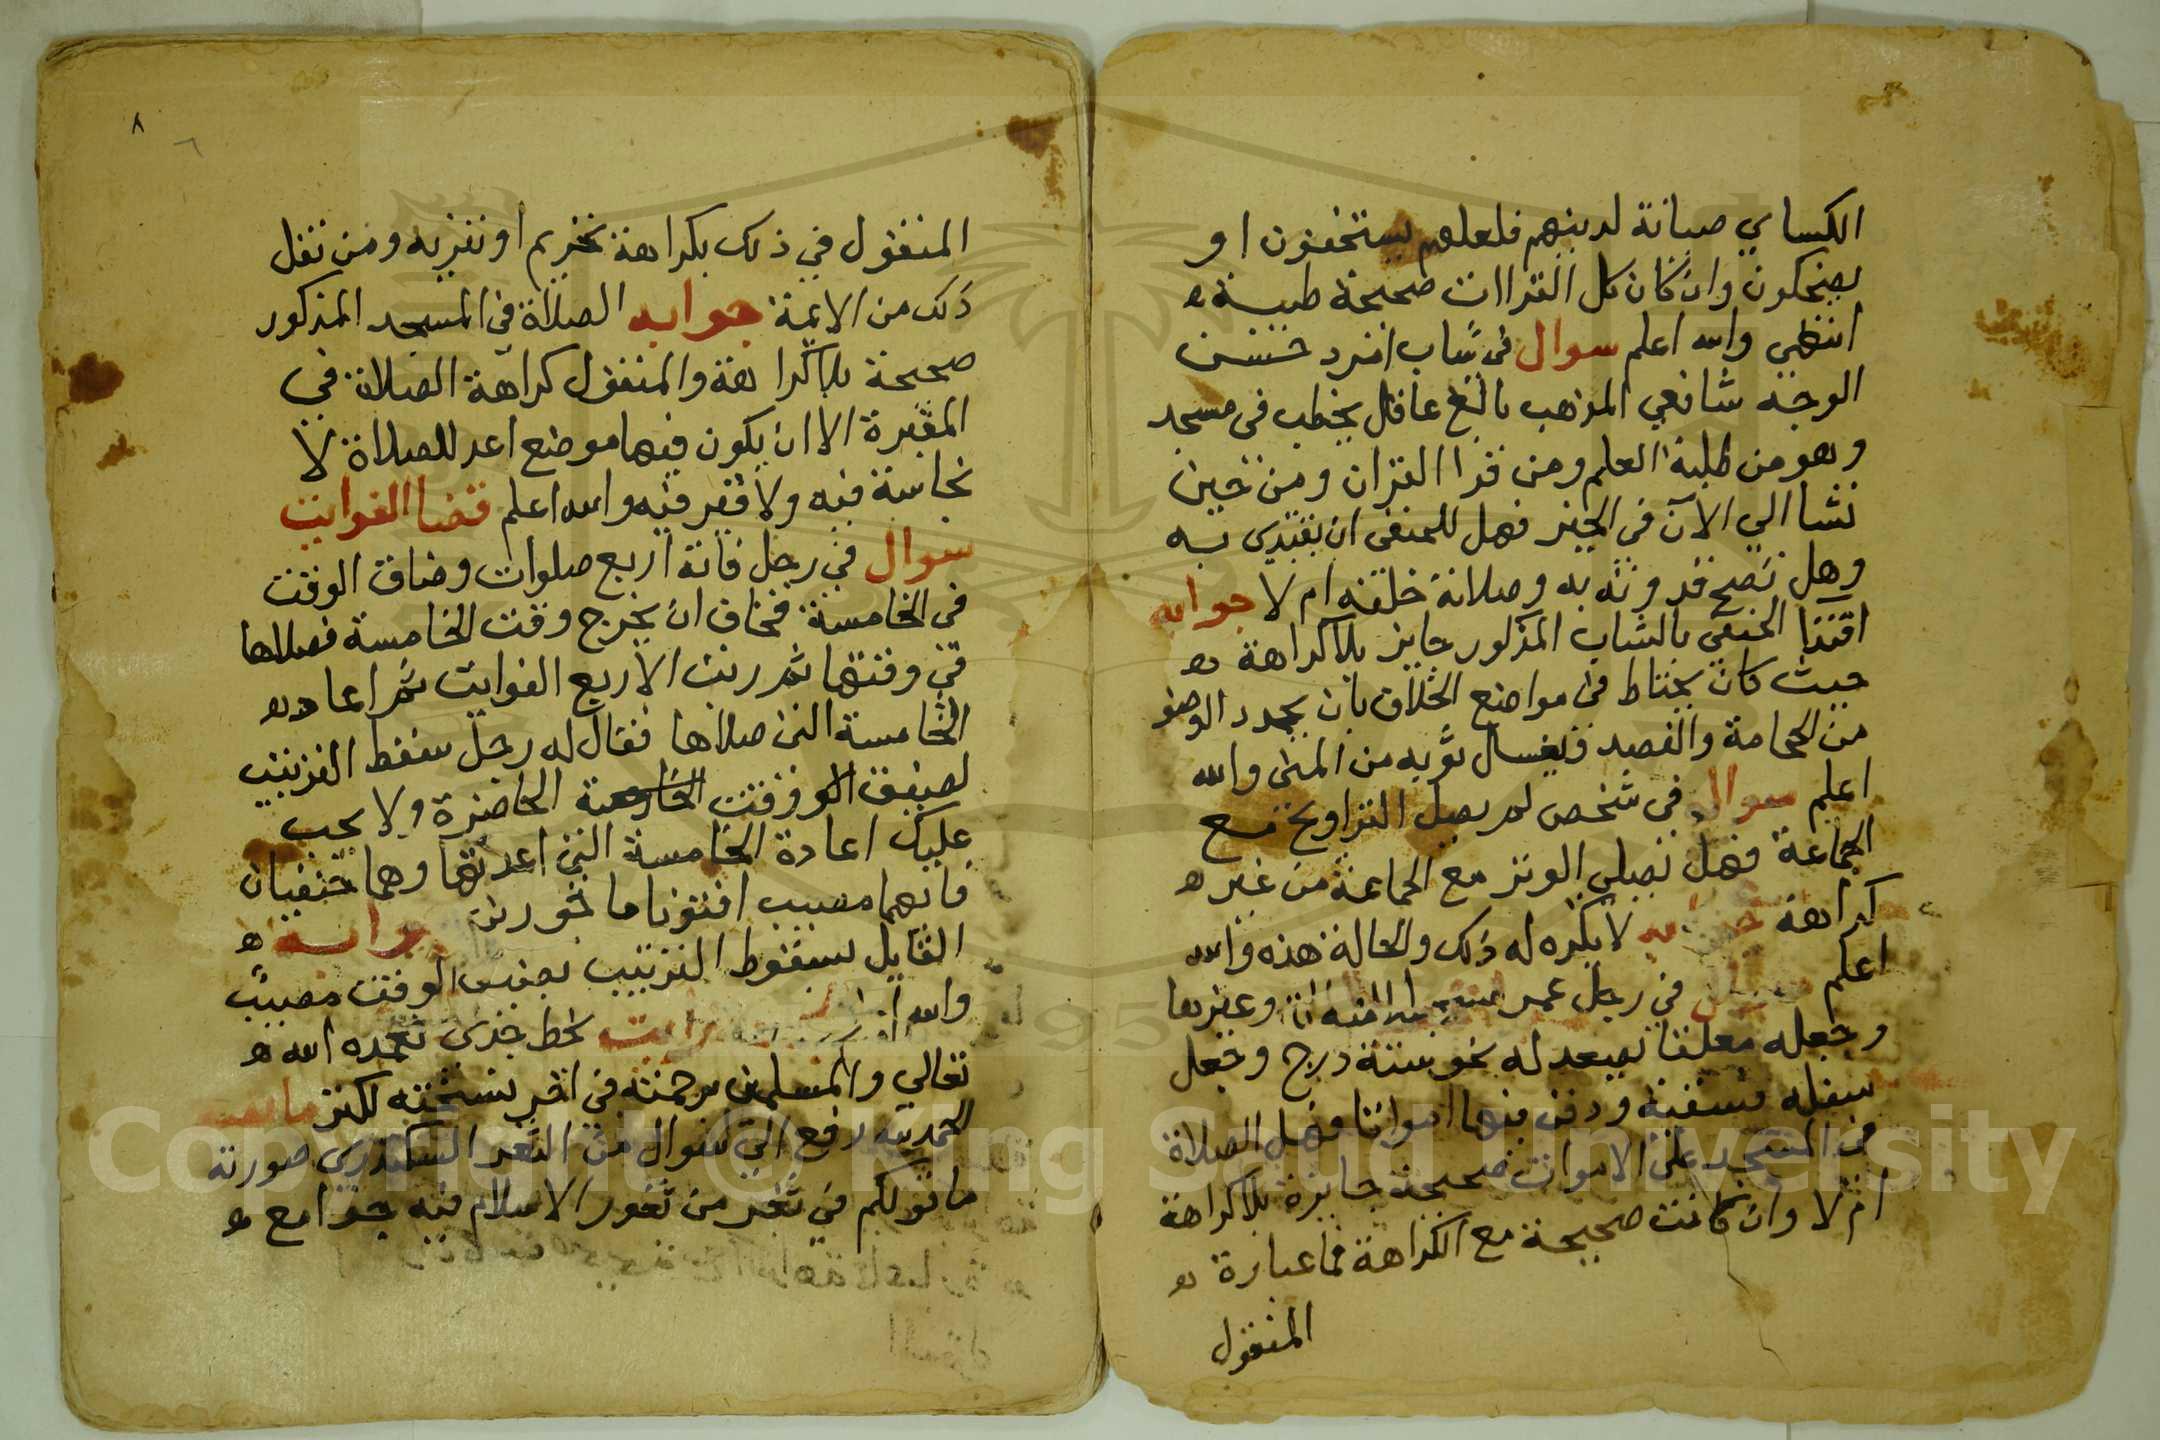 الكساي صيانة لدينهم فلعلهم يستخفون او
يضحكون وان كان كل القراات صحيحة طيبة
انتهي والله اعلم سوال في شاب امرد حسن
الوجه شافعي المذهب بالغ عاقل يخطب في مسجد
وهو من طلبة العلم ومن قرا القران ومن حين
نشا الي الآن في الخير فهل للحنفي ان يقتدي به
وهل تصح قدوته به وصلاته خلفه ام لا جوابه
اقتدا الحنفي بالشاب المذكور جايز بلا كراهة
حيث كان يحتاط في مواضع الخلاف بان يجدد الوضو
من الحجامة والفصد ويغسل ثوبه من المني والله
اعلم سوال في شخص لم يصل التراويح مع
الجماعة فهل يصلي الوتر مع الجماعة من غير
كراهة جوابه لا يكره له ذلك والحالة هذه والله
اعلم سوال في رجل عمر وغيرها
وجعله معلقا يصعد له نحو ستة درج وجعل
سفله فسقية ودفن فيها امواتا فهل الصلاة
في المسجد علي الاموات صحيحة جايزة بلا كراهة
ام لا وان كانت صحيحة مع الكراهة فما عبارة
المنقول
٨
٦
المنقول في ذلك بكراهة تحريم او تنزيه ومن نقل
ذلك من الايمة جوابه الصلاة في المسجد المذكور
صحيحة بلا كراهة والمنقول كراهة الصلاة في
المقبرة الا ان يكون فيها موضع اعد للصلاة لا
نجاسة فيه ولا قبر فيه والله اعلم قضا الفوايت
سوال في رجل فاته اربع صلوات وضاق الوقت
في الخامسة فخاف ان يخرج وقت الخامسة فصلاها
في وقتها ثم رتب الاربع الفوايت ثم اعاد
الخامسة التي صلاها فقال له رجل سقط الترتيب
لضيق الوقت الحاضرة ولا يجب
عليك اعادة الخامسة التي اعدتها وهما حنفيان
فايهما مصيب افتونا ماجورين جوابه
القايل بسقوط الترتيب بضيق الوقت مصيب
والله رايت بخط جدي تغمده الله
تعالي والمسلمين برحمته في اخر نسخته للكنز ما نصه
الحمد لله رفع الي سوال من الثغر السكندري صورته
ما قولكم في ثغر من ثغور الاسلام فيه جوامع